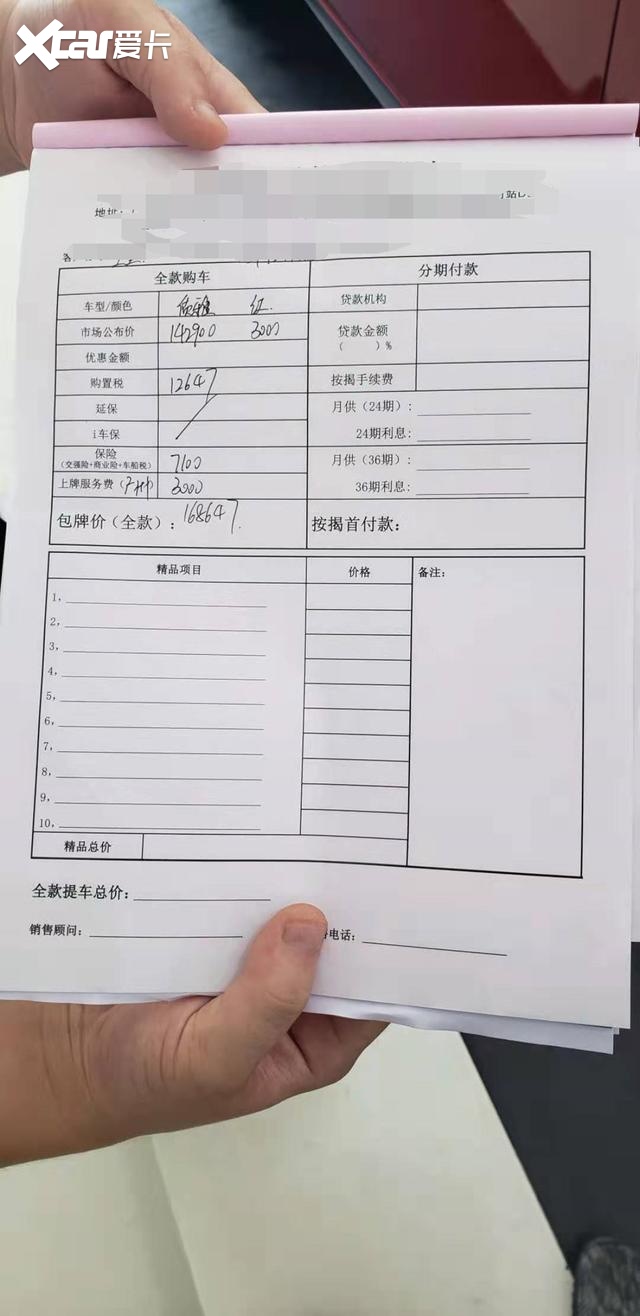 Xcar爱卡
地址:
全款购车 分期付款
车型/颜色 红.
贷款机构
市场公布价 142900 3000
贷款金额
( )%
优惠金额
购置税 12647
按揭手续费
延保
月供(24期):
i车保
24期利息:
保险
(交强险+商业险+车船税) 7100
月供(36期):
上牌服务费(广州) 3000
36期利息:
包牌价(全款): 168647.
按揭首付款:
精品项目 价格 备注:
1,
2,
3,
4,
5,
6,
7,
8,
9,
10,
精品总价
全款提车总价:
销售顾问: 电话: